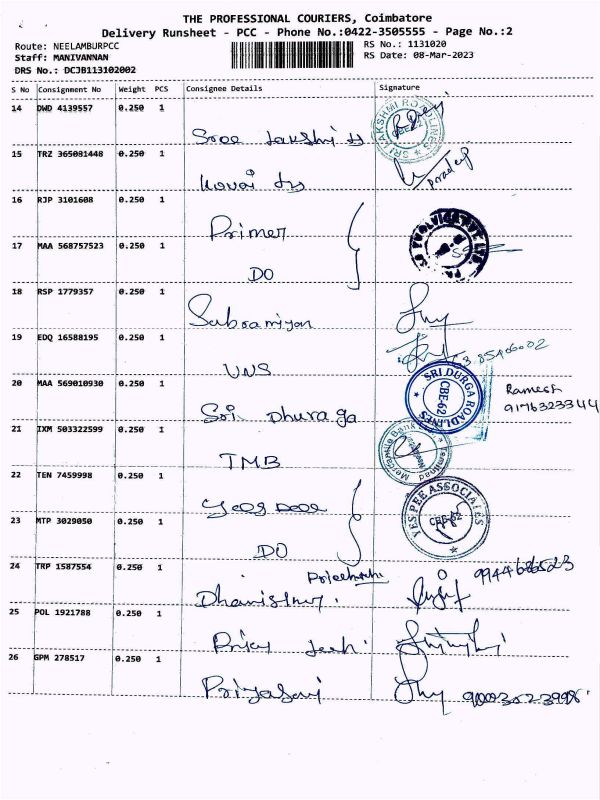 THE PROFESSIONAL COURIERS, Coimbatore
Delivery Runsheet - PCC - Phone No.:0422-3505555 - Page No.:2
Route: NEELAMBURPCC RS No.: 1131020
Staff: MANIVANNAN RS Date: 08-Mar-2023
DRS No.: DCJB113102002
S No Consignment No Weight PCS Consignee Details Signature
14 DWD 4139557 0.250 1
SRI LAKSHMI ROADLINES CBE-62
15 TRZ 365081448 0.250 1
Kovai
Pradeep
16 RJP 3101608 0.250 1
Primer
17 MAA 568757523 0.250 1
DO
18 RSP 1779357 0.250 1
Subramiyan
19 EDQ 16588195 0.250 1
VNS
20 MAA 569010930 0.250 1
Sri Dhuraga
SRI DURGA ROADLINES CBE-62
Ramesh
9176323344
21 IXM 503322599 0.250 1
TMB
Tamilnad Mercantile Bank
22 TEN 7459998 0.250 1
23 MTP 3029050 0.250 1
DO
YES PEE ASSOCIATES CBE-62
24 TRP 1587554 0.250 1
9944686523
25 POL 1921788 0.250 1
26 GPM 278517 0.250 1